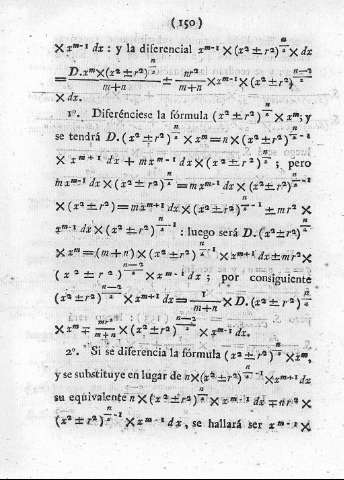 (150)
× x^{m-1} dx : y la diferencial x^{m-1} × (x² ± r²)^{n/2} × dx
= D.x^m × (x² ± r²)^{n/2} / m+n ± nr² / m+n × x^{m-1} × (x² ± r²)^{n-2/2}
× dx.
1º. Diferénciese la fórmula (x² ± r²)^{n/2} × x^m; y
se tendrá D. (x² ± r²)^{n/2} × x^m = n × (x² ± r²)^{n/2 -1}
× x^{m+1} dx + m x^{m-1} dx × (x² ± r²)^{n/2}; pero
m x^{m-1} dx × (x² ± r²)^{n/2} = m x^{m-1} dx × (x² ± r²)^{n/2 -1}
× (x² ± r²) = m x^{m+1} dx × (x² ± r²)^{n/2 -1} ± mr² ×
x^{m-1} dx × (x² ± r²)^{n/2 -1} : luego será D. (x² ± r²)^{n/2}
× x^m = (m+n) × (x² ± r²)^{n/2 -1} × x^{m+1} dx ± mr² ×
(x² ± r²)^{n-2/2} × x^{m-1} dx; por consiguiente
(x² ± r²)^{n-2/2} × x^{m+1} dx = 1 / m+n × D. (x² ± r²)^{n/2}
× x^m ∓ mr² / m+n × (x² ± r²)^{n-2/2} × x^{m-1} dx.
2º. Si se diferencia la fórmula (x² ± r²)^{n/2} × x^m,
y se substituye en lugar de n × (x² ± r²)^{n/2 -1} × x^{m+1} dx
su equivalente n × (x² ± r²)^{n/2} × x^{m-1} dx ∓ nr² ×
(x² ± r²)^{n/2 -1} × x^{m-1} dx, se hallará ser x^{m-1} ×